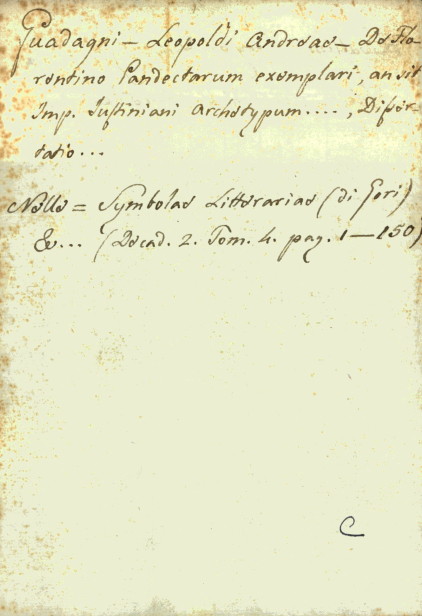 Guadagni - Leopoldi Andreae - De Flo-
rentino Pandectarum exemplari, an sit
Imp. Justiniani Archetypum...., Disser-
tatio...
Nelle = Symbolae Litterariae (di Gori)
&... (Decad. 2. Tom. 4. pag. 1-150)
C